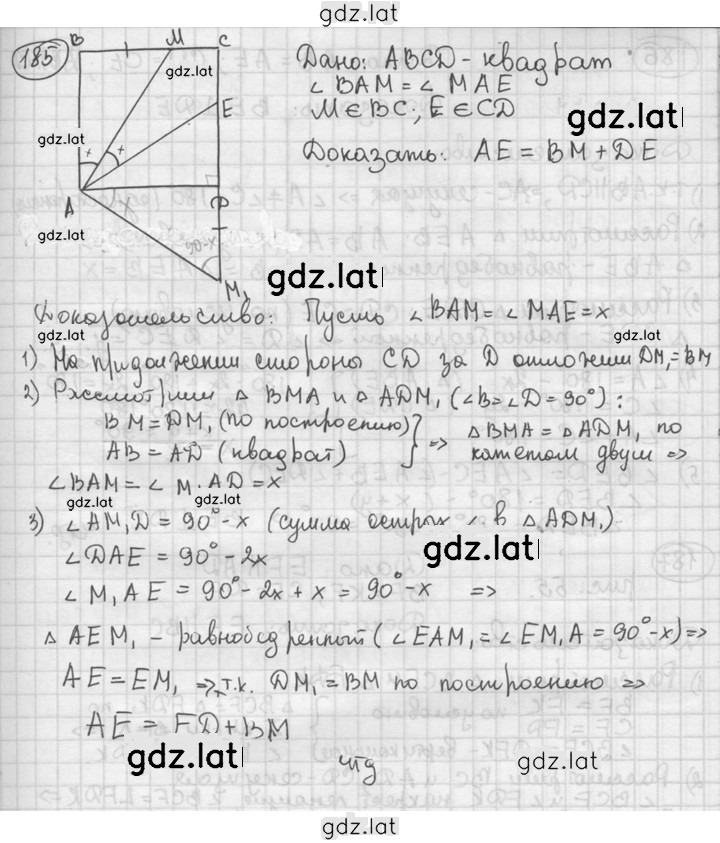 gdz.lat
185
B M C
gdz.lat
Дано: ABCD - квадрат
∠ BAM = ∠ MAE
M ∈ BC; E ∈ CD
E
gdz.lat
gdz.lat
Доказать: AE = BM + DE
x x
A D
x
gdz.lat
90-x
M₁
gdz.lat
Доказательство: Пусть ∠BAM = ∠MAE = x
gdz.lat
gdz.lat
1) На продолжении стороны CD за D отложим DM₁ = BM
2) Рассмотрим △ BMA и △ ADM₁ (∠B = ∠D = 90°):
BM = DM₁ (по построению)
AB = AD (квадрат)
} => △BMA = △ADM₁ по
катетам двум =>
∠BAM = ∠ M₁AD = x
gdz.lat
gdz.lat
3) ∠AM₁D = 90° - x (сумма острых ∠ в △ADM₁)
∠DAE = 90° - 2x
gdz.lat
∠ M₁AE = 90° - 2x + x = 90° - x =>
△ AEM₁ - равнобедренный (∠EAM₁ = ∠EM₁A = 90° - x) =>
AE = EM₁ => т.к. DM₁ = BM по построению =>
AE = ED + BM
gdz.lat
чтд
gdz.lat
gdz.lat